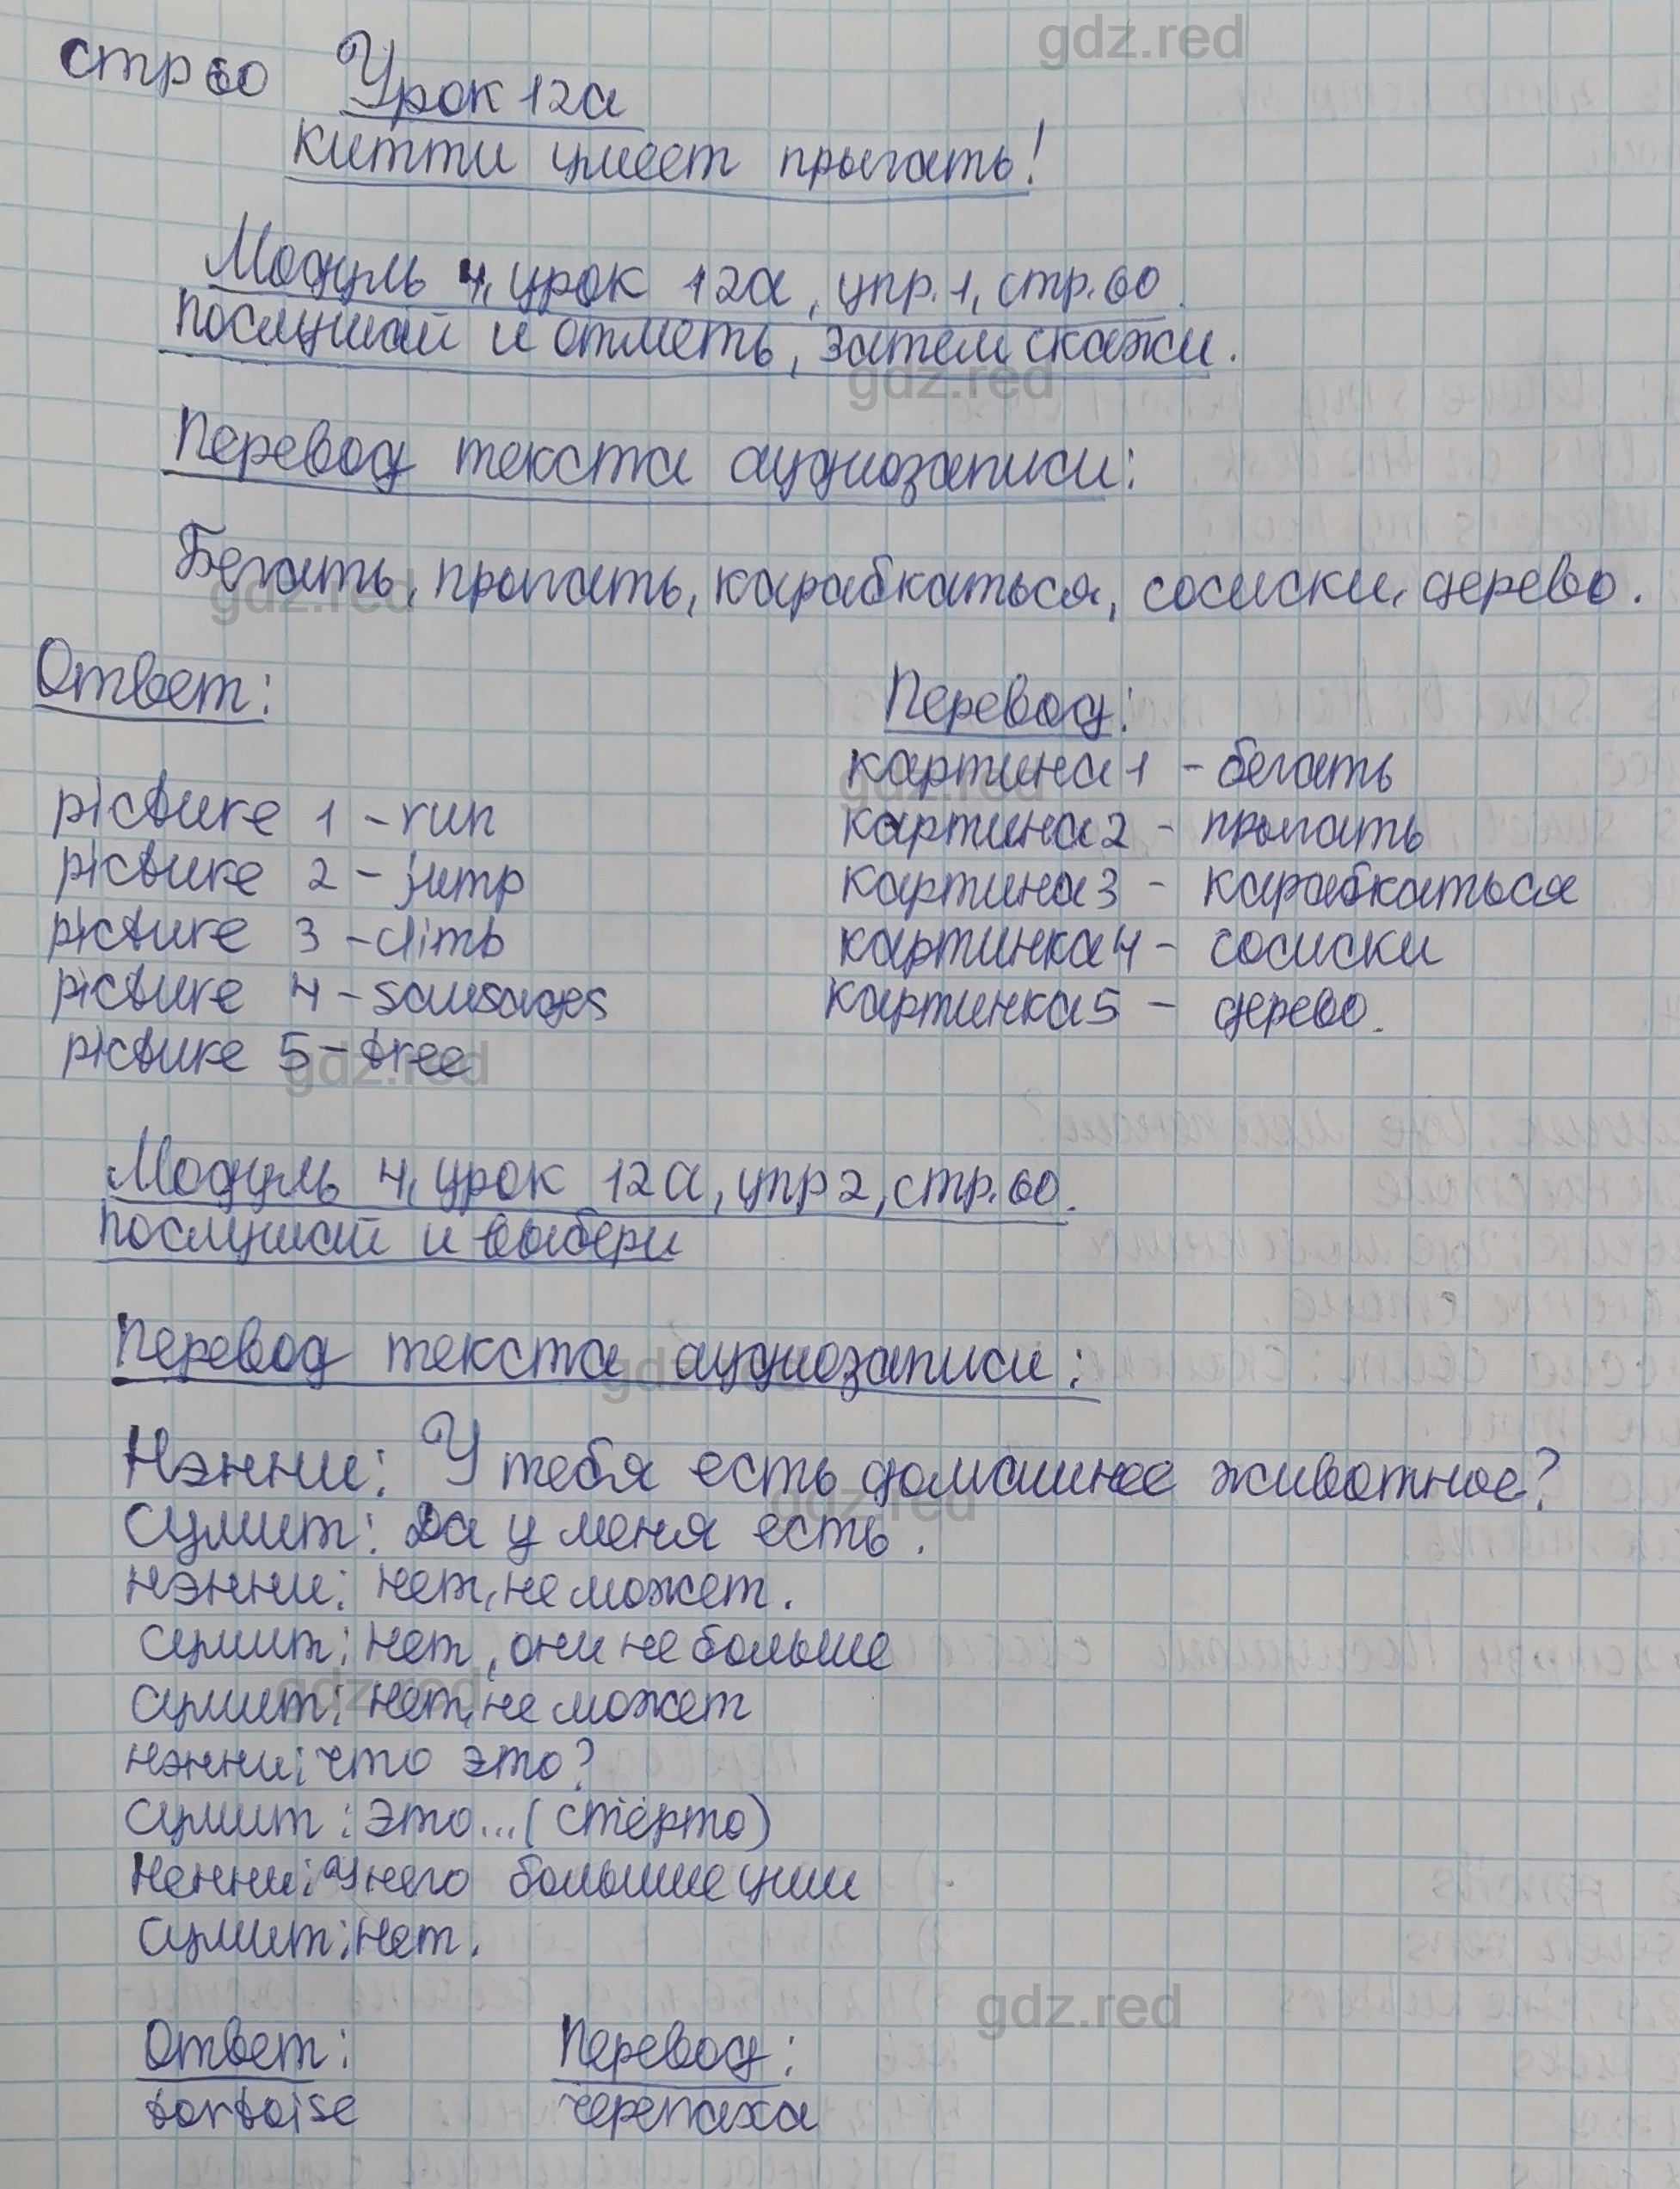 стр 60 Урок 12а
китти умеет прыгать!
Модуль 4, урок 12а, упр. 1, стр. 60.
послушай и отметь, затем скажи.
Перевод текста аудиозаписи:
Бегать, прыгать, карабкаться, сосиски, дерево.
Ответ:
picture 1 - run
picture 2 - jump
picture 3 - climb
picture 4 - sausages
picture 5 - tree
Перевод:
картина 1 - бегать
картина 2 - прыгать
картина 3 - карабкаться
картинка 4 - сосиски
картинка 5 - дерево.
Модуль 4, урок 12а, упр 2, стр. 60.
послушай и выбери
Перевод текста аудиозаписи:
Нэнни: У тебя есть домашнее животное?
Сумит: Да у меня есть.
нэнни: нет, не может.
сумит: нет, они не больше
сумит: нет, не может
нэнни: что это?
сумит: это... (стёрто)
Ненни: У него большие уши
сумит: нет.
Ответ:
tortoise
Перевод:
черепаха
gdz.red
gdz.red
gdz.red
gdz.red
gdz.red
gdz.red
gdz.red
gdz.red
gdz.red